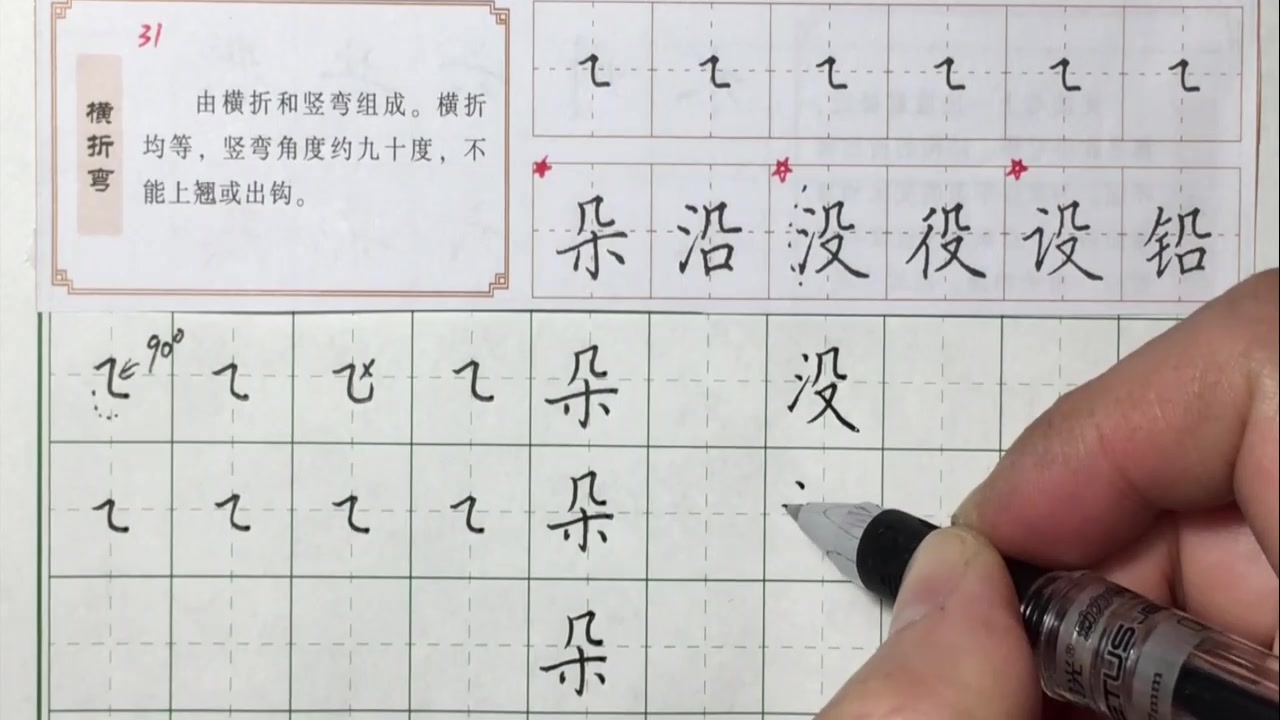 31
横折弯
由横折和竖弯组成。横折
均等，竖弯角度约九十度，不
能上翘或出钩。
㇍ ㇍ ㇍ ㇍ ㇍ ㇍
朵 沿 没 役 设 铅
㇍ 90° ㇍ ㇍ × ㇍ 朵 没
㇍ ㇍ ㇍ ㇍ 朵
朵